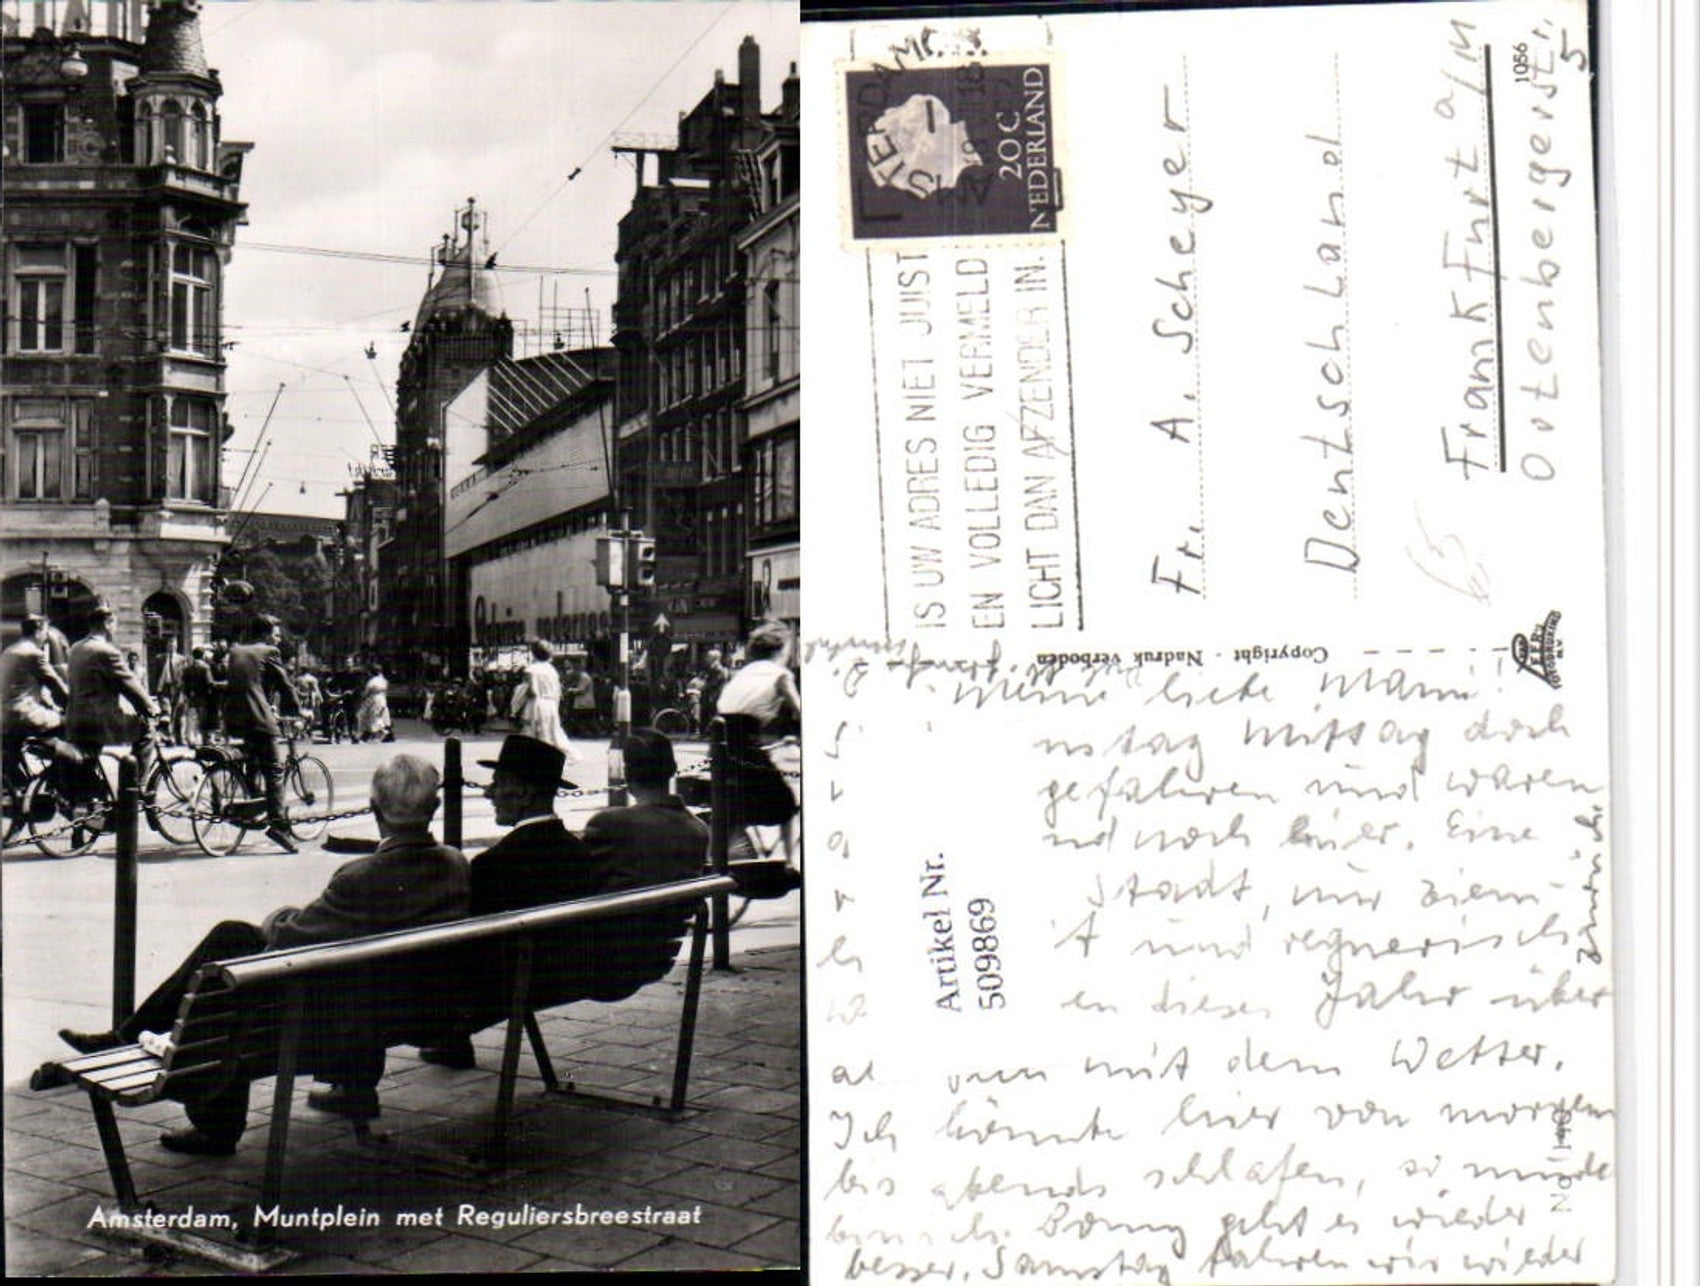 Amsterdam, Muntplein met Reguliersbreestraat
20 C
NEDERLAND
IS UW ADRES NIET JUIST
EN VOLLEDIG VERMELD
LICHT DAN AFZENDER IN.
Fr. A. Scheyer
Deutschland
Frankfurt a/M
Ortenbergerstr.
5
1056
Copyright - Nadruk verboden
Artikel Nr.
509869
Meine liebe Mami!
mittag doch
gefahren und waren
noch hier. Eine
Stadt, nur ziem-
und regnerisch
en dieses Jahr über
mit dem Wetter.
Ich könnte hier von morgens
bis abends schlafen, so müde
bin ich. Bonny geht es wieder
besser. Samstag fahren wir wieder
zurück.